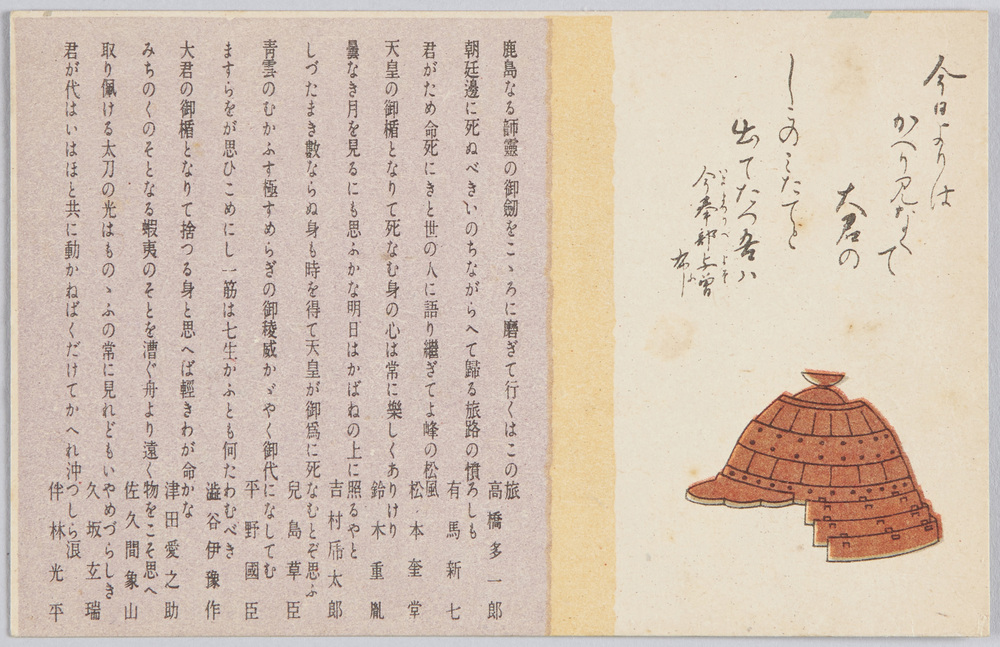 今日よりは
かへり見なくて
大君の
しこのみたてと
出てたつ吾ハ
今奉部与曽
布
鹿島なる韴靈の御劒をこゝろに磨ぎて行くはこの旅
高橋多一郎
朝廷邊に死ぬべきいのちながらへて歸る旅路の憤ろしも
有馬新七
君がため命死にきと世の人に語り繼ぎてよ峰の松風
松本奎堂
天皇の御楯となりて死なむ身の心は常に樂しくありけり
鈴木重胤
曇なき月を見るにも思ふかな明日はかばねの上に照るやと
吉村寅太郎
しづたまき數ならぬ身も時を得て天皇が御爲に死なむとぞ思ふ
兒島草臣
靑雲のむかふす極すめらぎの御稜威かゞやく御代になしてむ
平野國臣
ますらをが思ひこめにし一筋は七生かふとも何たわむべき
澁谷伊豫作
大君の御楯となりて捨つる身と思へば輕きわが命かな
津田愛之助
みちのくのそとなる蝦夷のそとを漕ぐ舟より遠く物をこそ思へ
佐久間象山
取り佩ける太刀の光はものゝふの常に見れどもいやめづらしき
久坂玄瑞
君が代はいはほと共に動かねばくだけてかへれ沖つしら浪
伴林光平